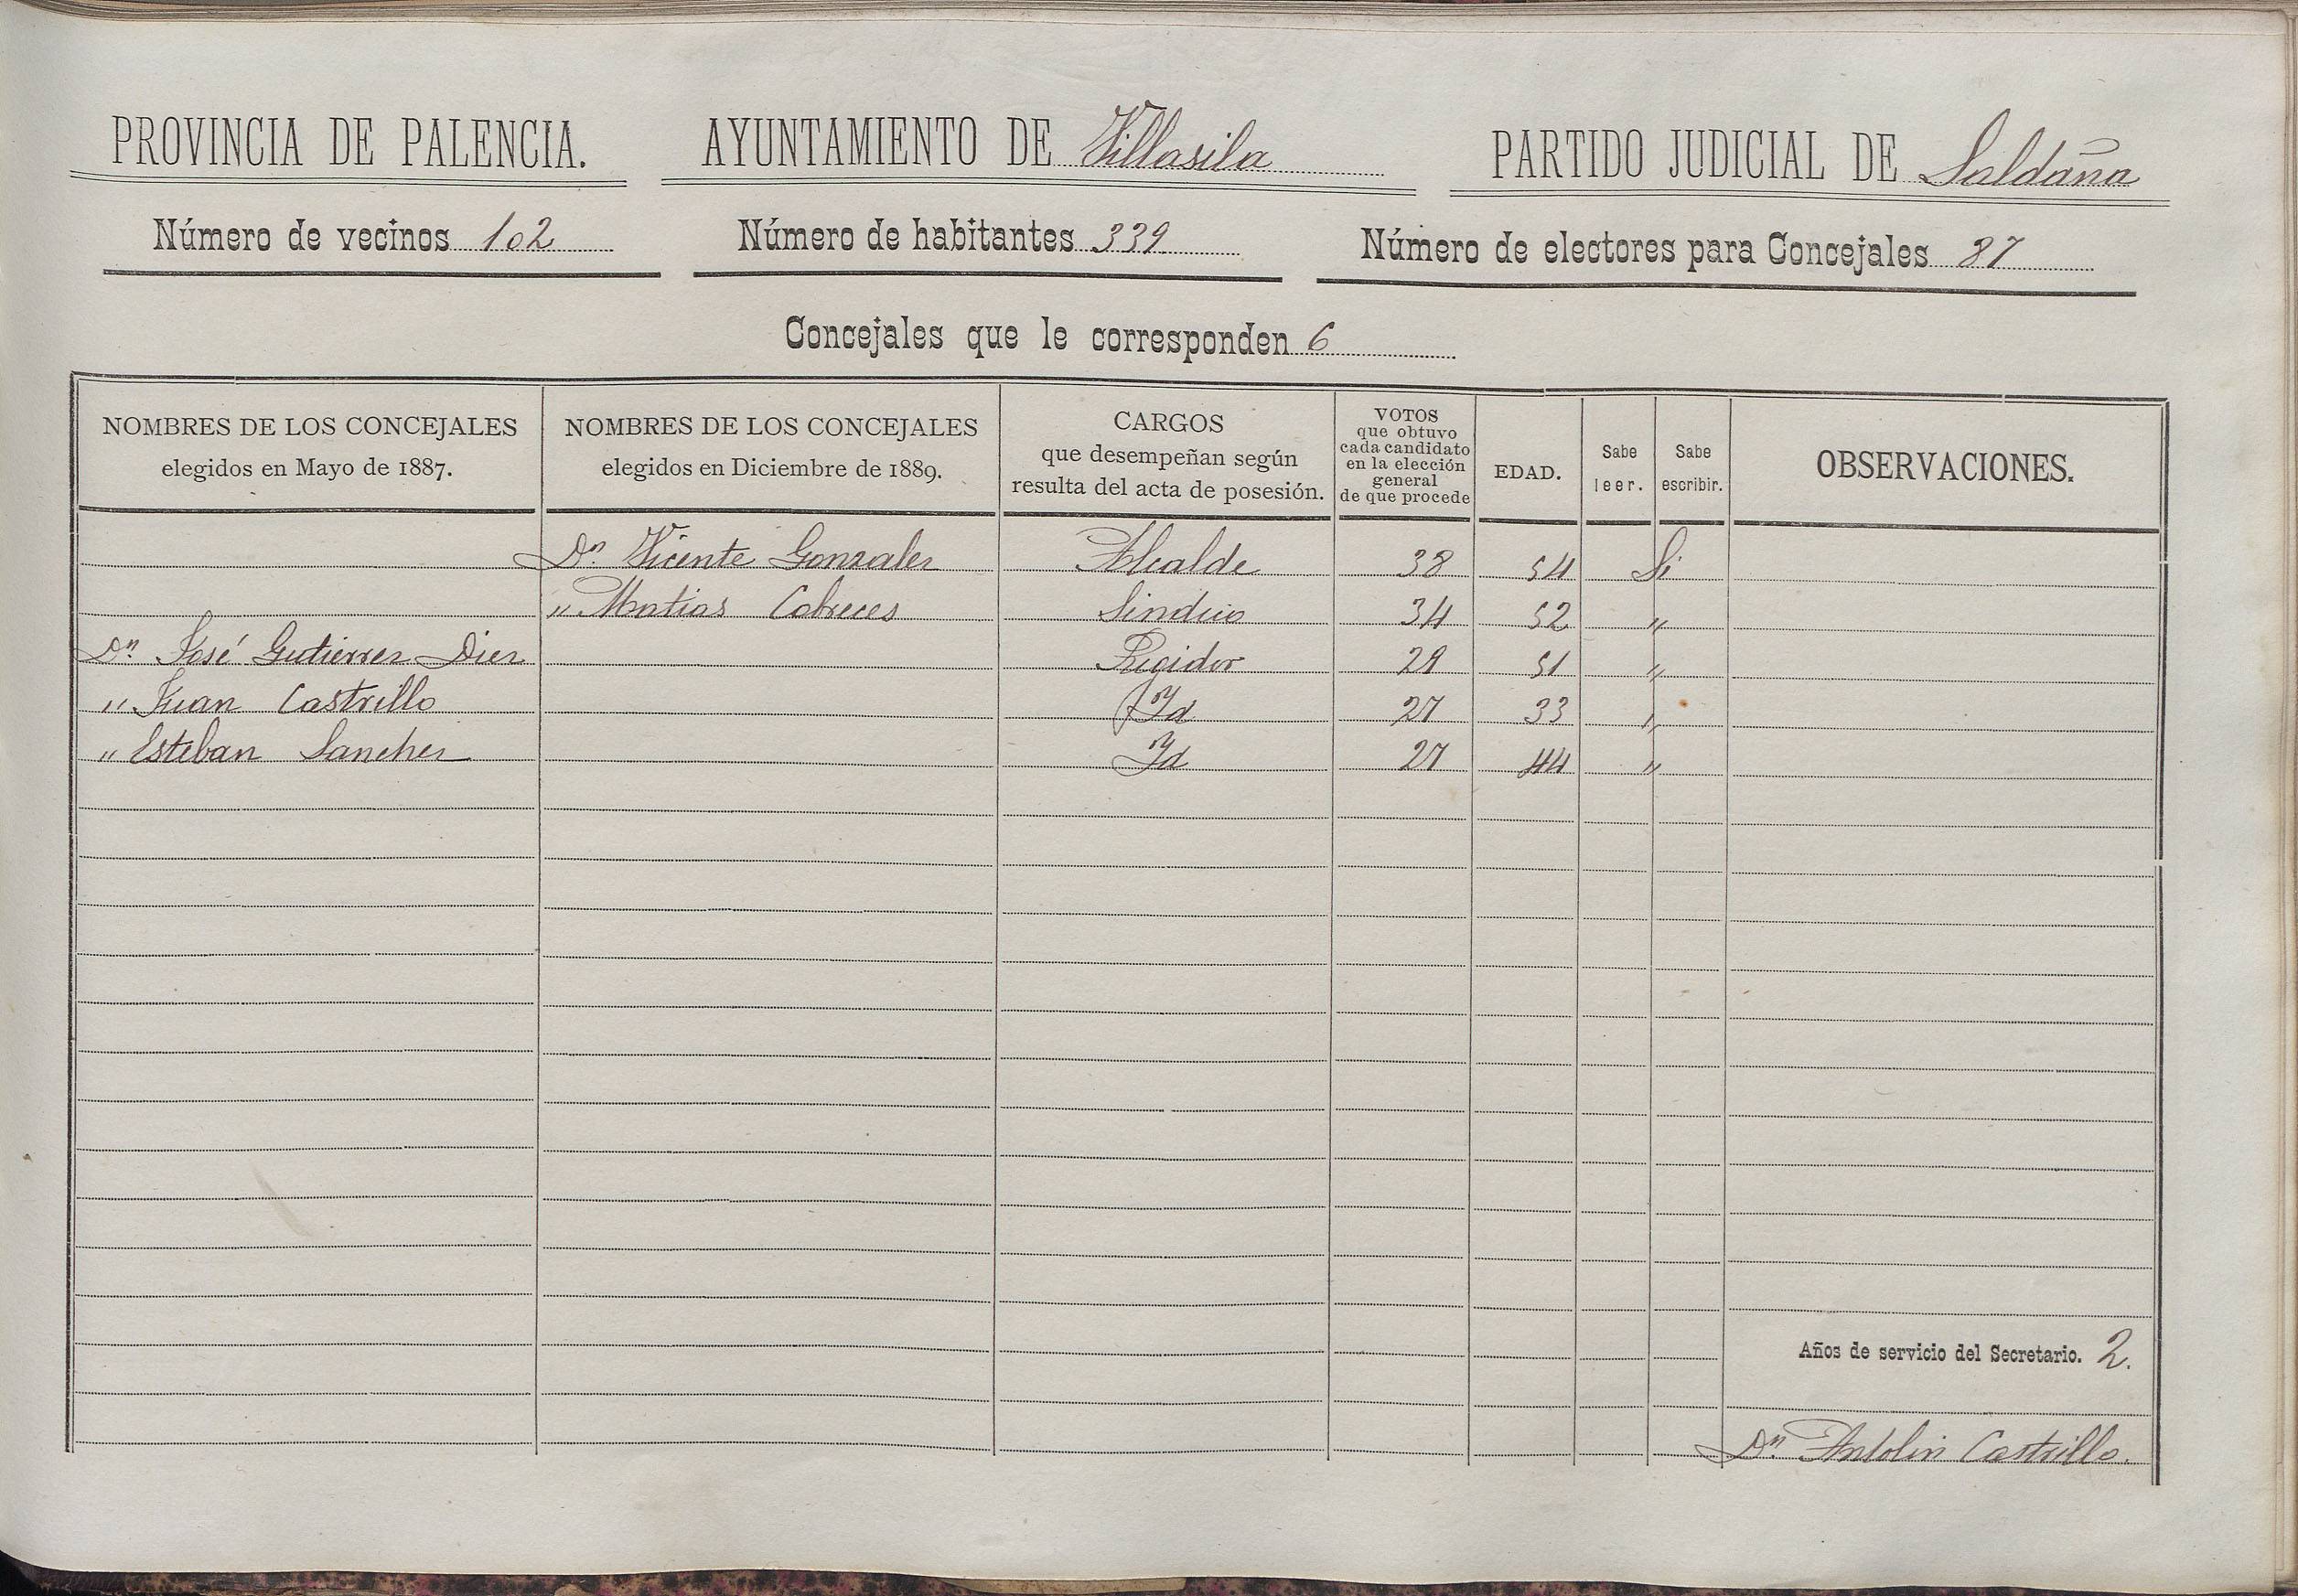 PROVINCIA DE PALENCIA. AYUNTAMIENTO DE Villasila PARTIDO JUDICIAL DE Saldaña
Número de vecinos 102 Número de habitantes 339 Número de electores para Concejales 87
Concejales que le corresponden 6
NOMBRES DE LOS CONCEJALES elegidos en Mayo de 1887. NOMBRES DE LOS CONCEJALES elegidos en Diciembre de 1889. CARGOS que desempeñan según resulta del acta de posesión. VOTOS que obtuvo cada candidato en la elección general de que procede EDAD. Sabe leer. Sabe escribir. OBSERVACIONES.
Dn. Vicente Gonzalez Alcalde 38 54 Si
" Matias Cabreces Sindico 34 52 "
Dn. José Gutierrez Diez Regidor 29 51 "
" Juan Castrillo Id 27 33 "
" Esteban Sanchez Id 27 44 "
Años de servicio del Secretario. 2.
Dn. Antolin Castrillo.